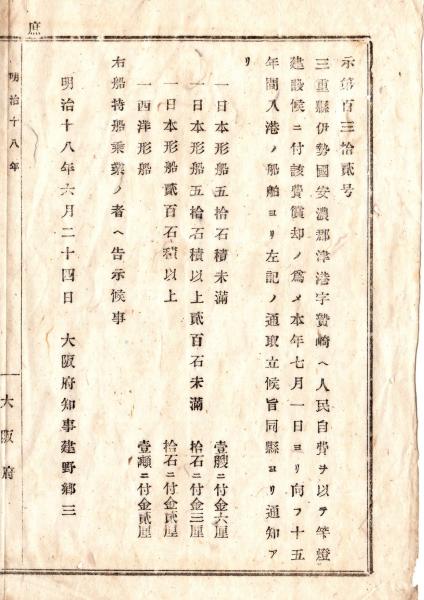 庶
示第百三拾貳号
三重縣伊勢國安濃郡津港字贄崎ヘ人民自費ヲ以テ竿燈
建設候ニ付該費償却ノ爲メ本年七月一日ヨリ向フ十五
年間入港ノ船舶ヨリ左記ノ通取立候旨同縣ヨリ通知ア
リ
一日本形船五拾石積未滿 壹艘ニ付金六厘
一日本形船五拾石積以上貳百石未滿 拾石ニ付金三厘
一日本形船貳百石積以上 拾石ニ付金貳厘
一西洋形船 壹噸ニ付金貳厘
右船持船乘業ノ者ヘ告示候事
明治十八年六月二十四日 大阪府知事建野郷三
明治十八年
大阪府